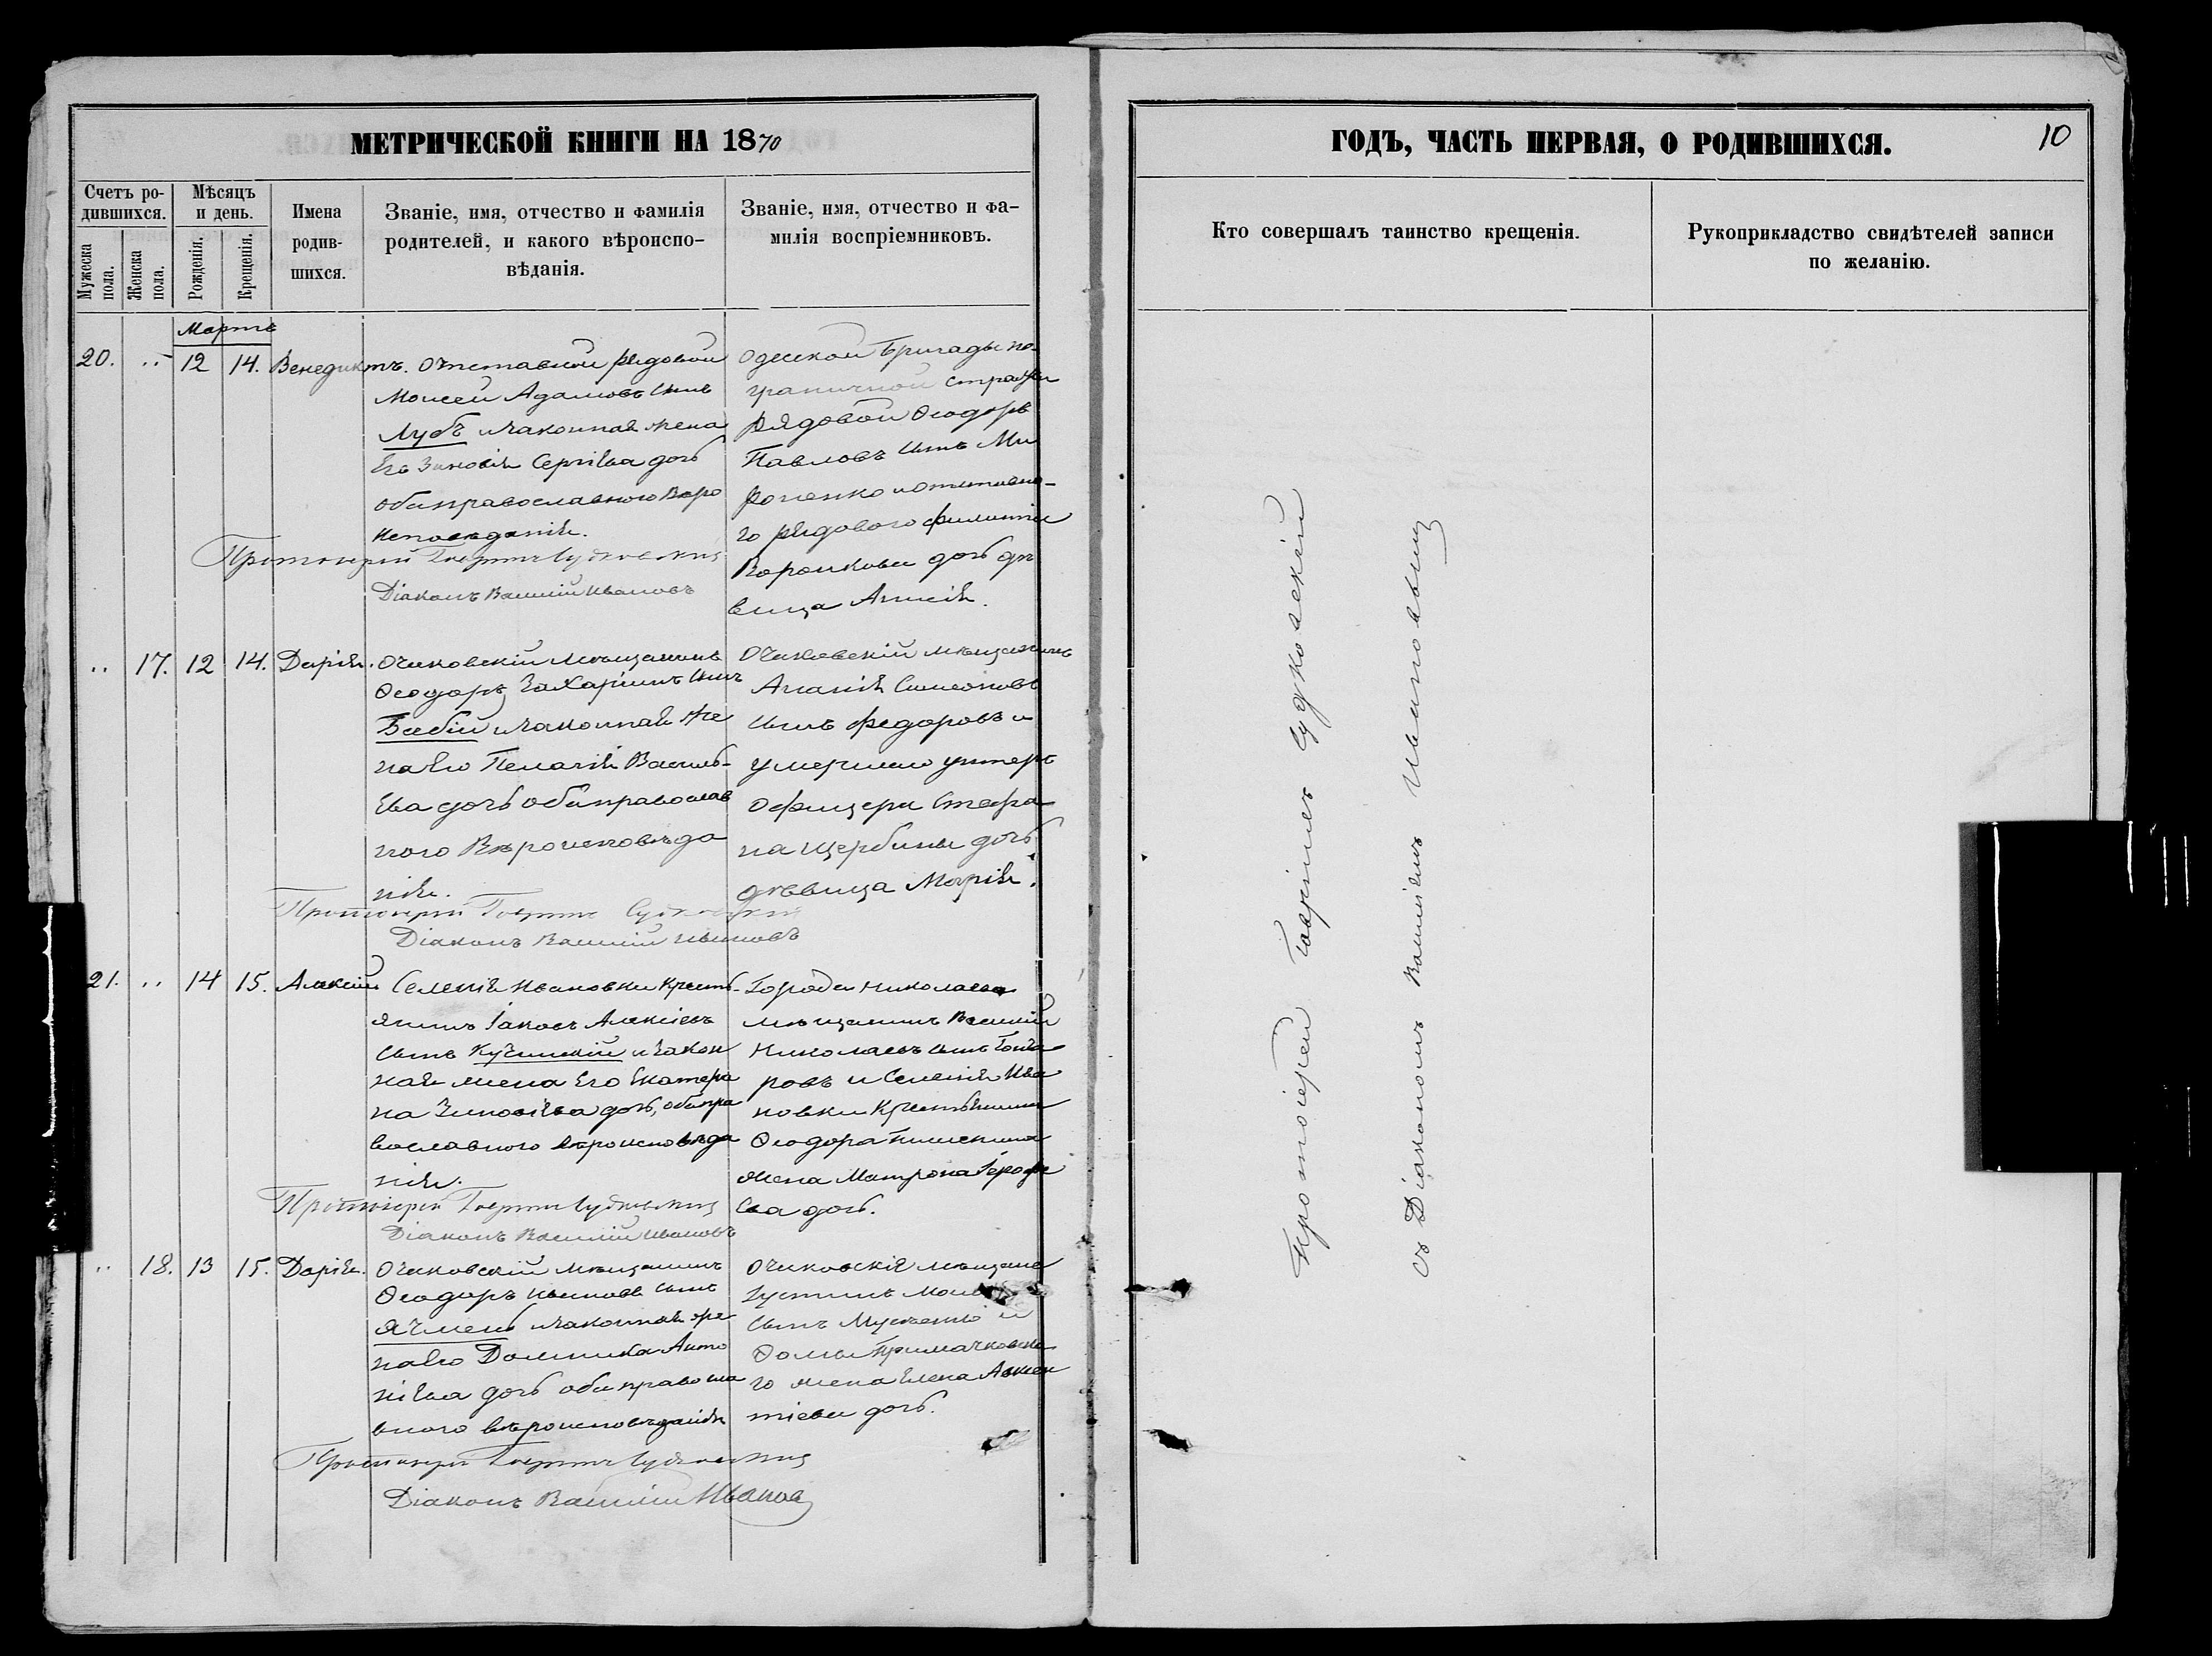 МЕТРИЧЕСКОЙ КНИГИ НА 1870
Счетъ ро-
дившихся.
Мѣсяцъ
и день.
Имена
родив-
шихся.
Званіе, имя, отчество и фамилія
родителей, и какого вѣроиспо-
вѣданія.
Званіе, имя, отчество и фа-
милія воспріемниковъ.
Мужеска
пола.
Женска
пола.
Рожденія.
Крещенія.
Мартъ
20. „ 12 14. Венедиктъ.
Отставной рядовой
Моисей Адамовъ сынъ
Лубъ и законная жена
Его Зиновія Сергіева дочь
оба православнаго Веро
исповеданія.
Протоіерей Гавріилъ Судковскій
Діаконъ Василій Ивановъ
Одесской Бригады по-
граничной стражи
Рядовой Ѳеодоръ
Павловъ сынъ Ми
роненко и отставно-
го рядового Филиппа
дочь дѣ
вица
„ 17. 12 14. Дарія.
Очаковскій мѣщанинъ
Ѳеодоръ Захаріинъ сынъ
Бабій и законная же
на Его Пелагія Василь-
Ева дочь оба православ
ного Вѣроисповѣда
нія.
Протоіерей Гавріилъ Судковскій
Діаконъ Василій Ивановъ
Очаковскій мѣщанинъ
Ананія Симеоновъ
сынъ Федоровъ и
умершаго унтеръ
офицера Стефа
на Щербины дочь
дѣвица Марія.
21. „ 14 15. Алексій
Селенія Ивановки Кресть-
янинъ Іаковъ Алексіевъ
сынъ Кучинскій и закон
ная жена Его Екатери
на Зиновіева дочь, оба пра
вославного вѣроисповѣда
нія.
Протоіерей Гавріилъ Судковскій
Діаконъ Василій Ивановъ
Города Николаева
мѣщанинъ Василій
Николаевъ сынъ Гонча
ровъ и Селенія Ива
новки Крестьянина
Ѳеодора
жена Матрона
Ева дочь.
„ 18. 13 15. Дарія.
Очаковскій мѣщанинъ
Ѳеодоръ Ивановъ сынъ
Ячмень и законная же
на Его Домника Анто
ніева дочь оба правосла
вного вѣроисповѣданія
Протоіерей Гавріилъ Судковскій
Діаконъ Василій Ивановъ
Очаковскіе мѣщане
Іустинъ
сынъ и
Ѳомы Примачковска
го жена Елена Авксен
тіева дочь.
ГОДЪ, ЧАСТЬ ПЕРВАЯ, О РОДИВШИХСЯ.
10
Кто совершалъ таинство крещенія.
Рукоприкладство свидѣтелей записи
по желанію.
Протоіерей Гавріилъ Судковскій
съ Діакономъ Василіемъ Ивановымъ